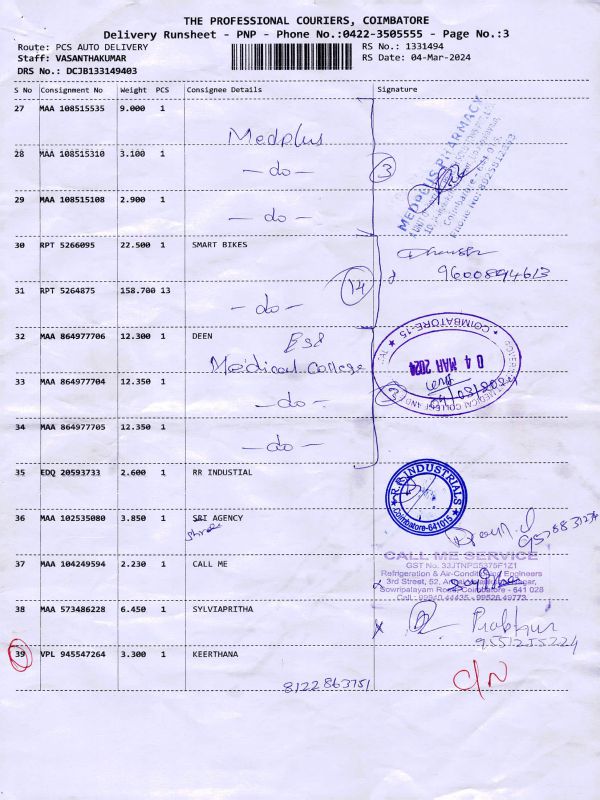 THE PROFESSIONAL COURIERS, COIMBATORE
Delivery Runsheet - PNP - Phone No.:0422-3505555 - Page No.:3
Route: PCS AUTO DELIVERY
RS No.: 1331494
Staff: VASANTHAKUMAR
RS Date: 04-Mar-2024
DRS No.: DCJB133149403
S No Consignment No Weight PCS Consignee Details Signature
27 MAA 108515535 9.000 1
Medplus
28 MAA 108515310 3.100 1
— do —
3
MEDPLUS PHARMACY
29 MAA 108515108 2.900 1
— do —
30 RPT 5266095 22.500 1 SMART BIKES
9600894613
31 RPT 5264875 158.700 13
— do —
14
32 MAA 864977706 12.300 1 DEEN
ESI
Medical College
COIMBATORE-15
04 MAR 2024
MEDICAL COLLEGE AND
33 MAA 864977704 12.350 1
— do —
34 MAA 864977705 12.350 1
— do —
35 EDQ 20593733 2.600 1 RR INDUSTIAL
R.R INDUSTRIALS
Coimbatore-641015
36 MAA 102535080 3.850 1 SRI AGENCY
Shree
37 MAA 104249594 2.230 1 CALL ME
CALL ME SERVICE
GST No. 33JTNPS5375F1Z1
Refrigeration & Air-Conditioning Engineers
3rd Street, 52,
Sowripalayam Road, Coimbatore - 641 028
38 MAA 573486228 6.450 1 SYLVIAPRITHA
X
9551255224
39 VPL 945547264 3.300 1 KEERTHANA
8122863751
C/N